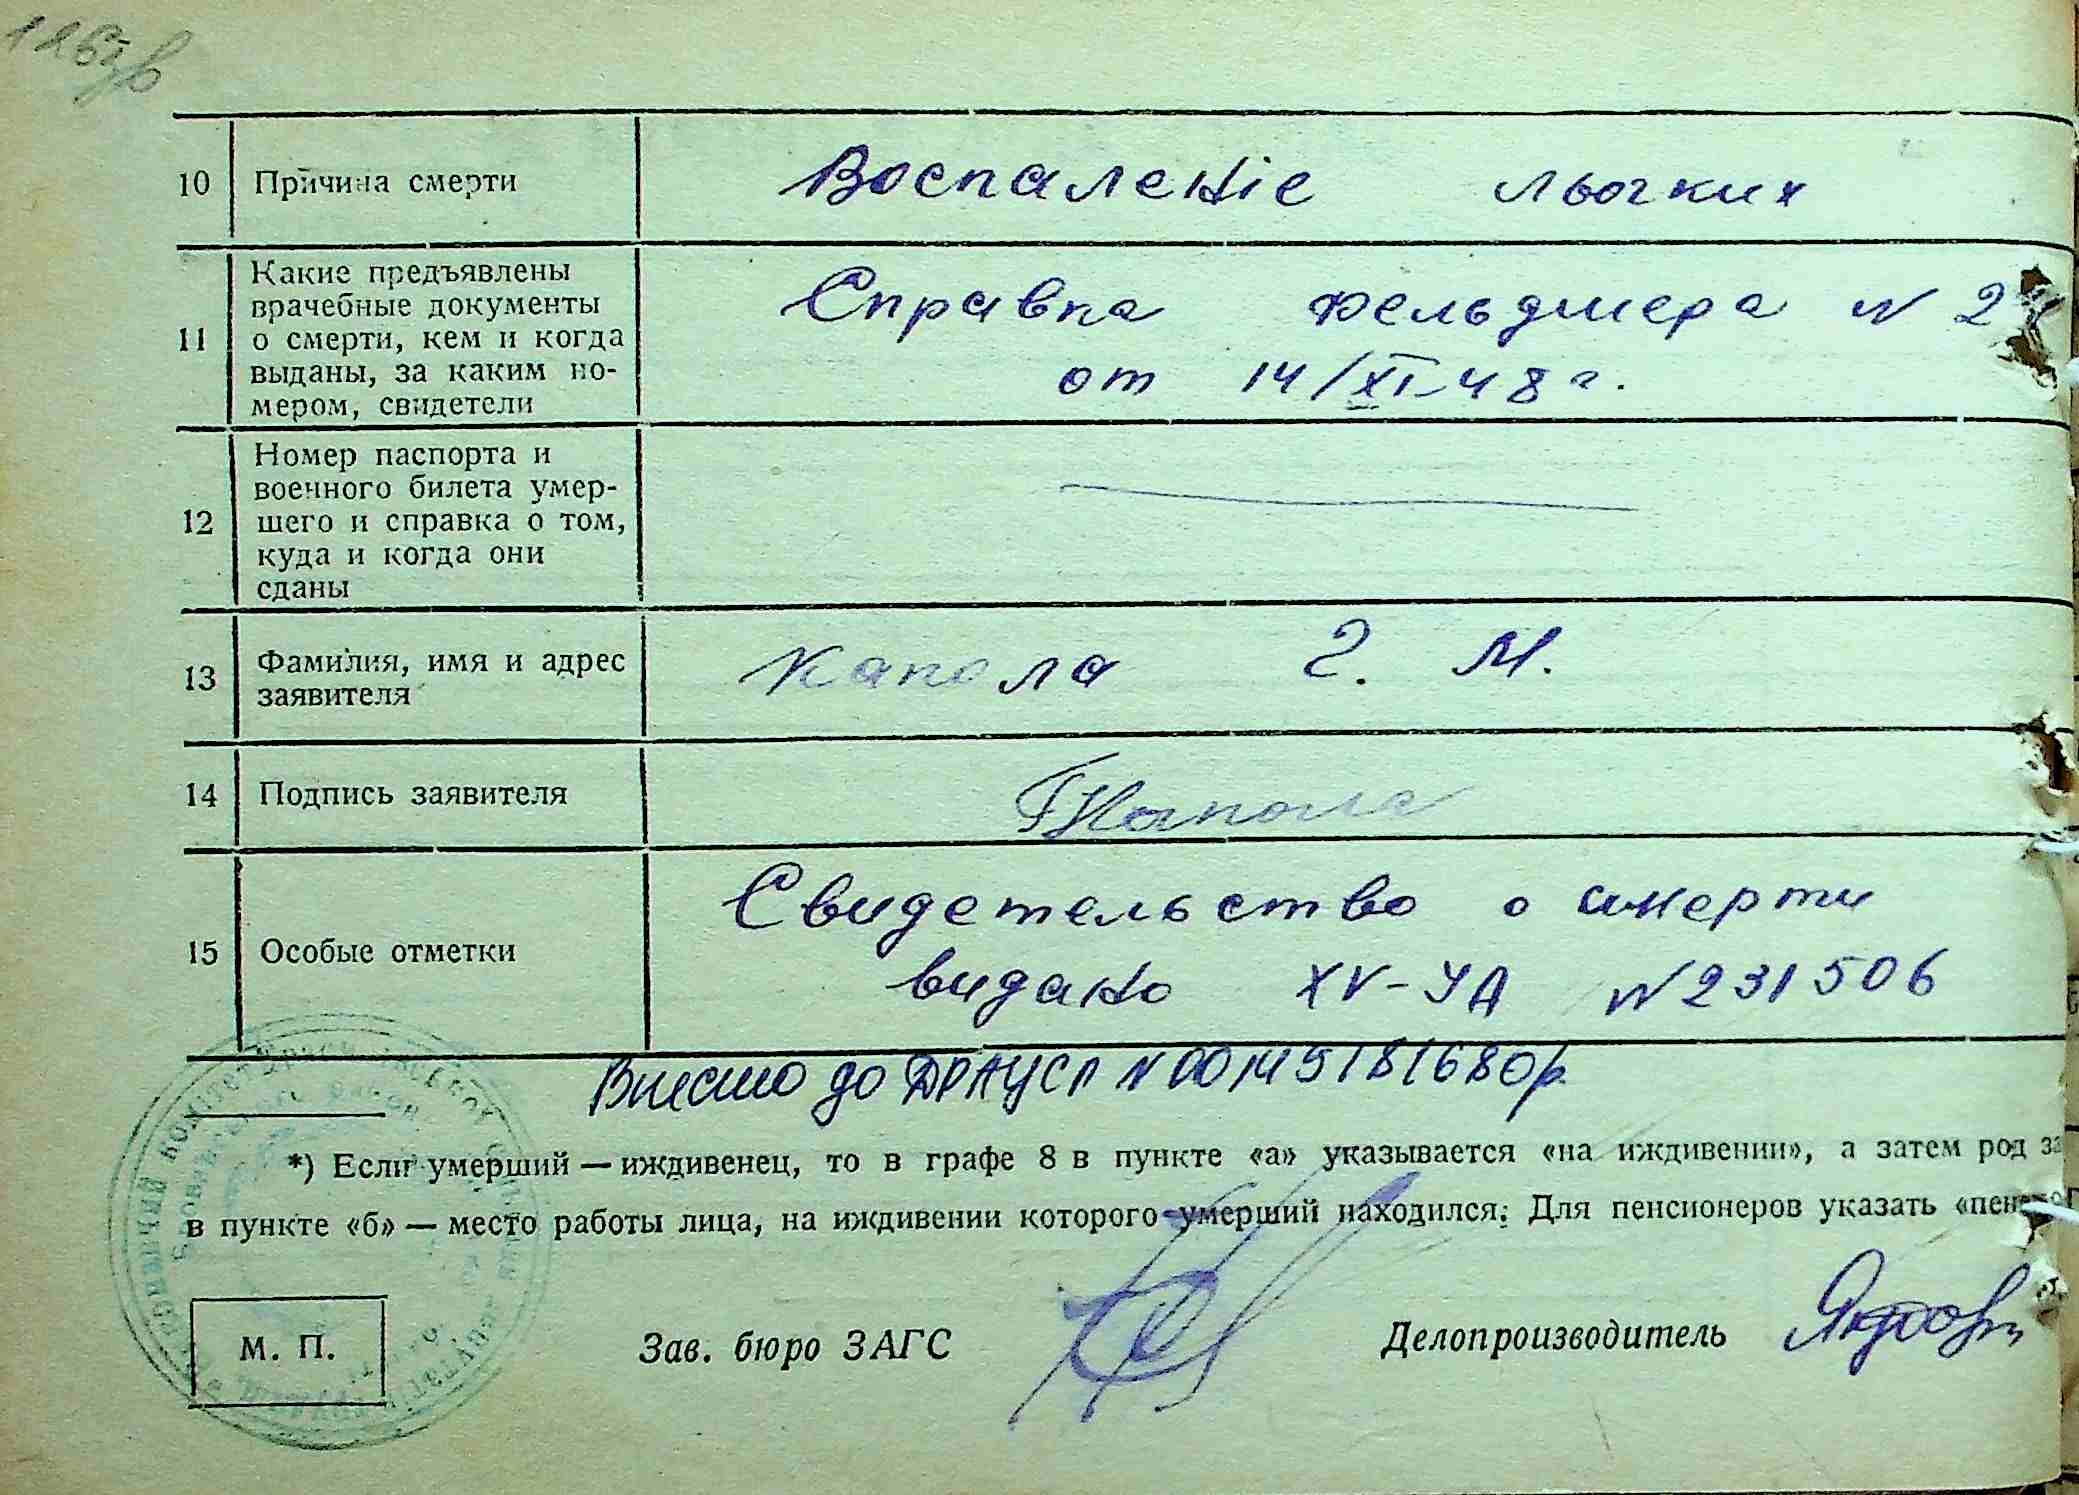 10 Причина смерти Воспаленіе льогких
11 Какие предъявлены
врачебные документы
о смерти, кем и когда
выданы, за каким но-
мером, свидетели
Справка фельдшера N 2
от 14/XI-48 г.
12 Номер паспорта и
военного билета умер-
шего и справка о том,
куда и когда они
сданы
13 Фамилия, имя и адрес
заявителя
Капола Г. М.
14 Подпись заявителя Капола
15 Особые отметки
Свидетельство о смерти
видано XV-УА N 231506
Внесено до ДРАЦСГ N 00145181680
*) Если умерший — иждивенец, то в графе 8 в пункте «а» указывается «на иждивении», а затем род за
в пункте «б» — место работы лица, на иждивении которого умерший находился. Для пенсионеров указать
М. П. Зав. бюро ЗАГС Делопроизводитель